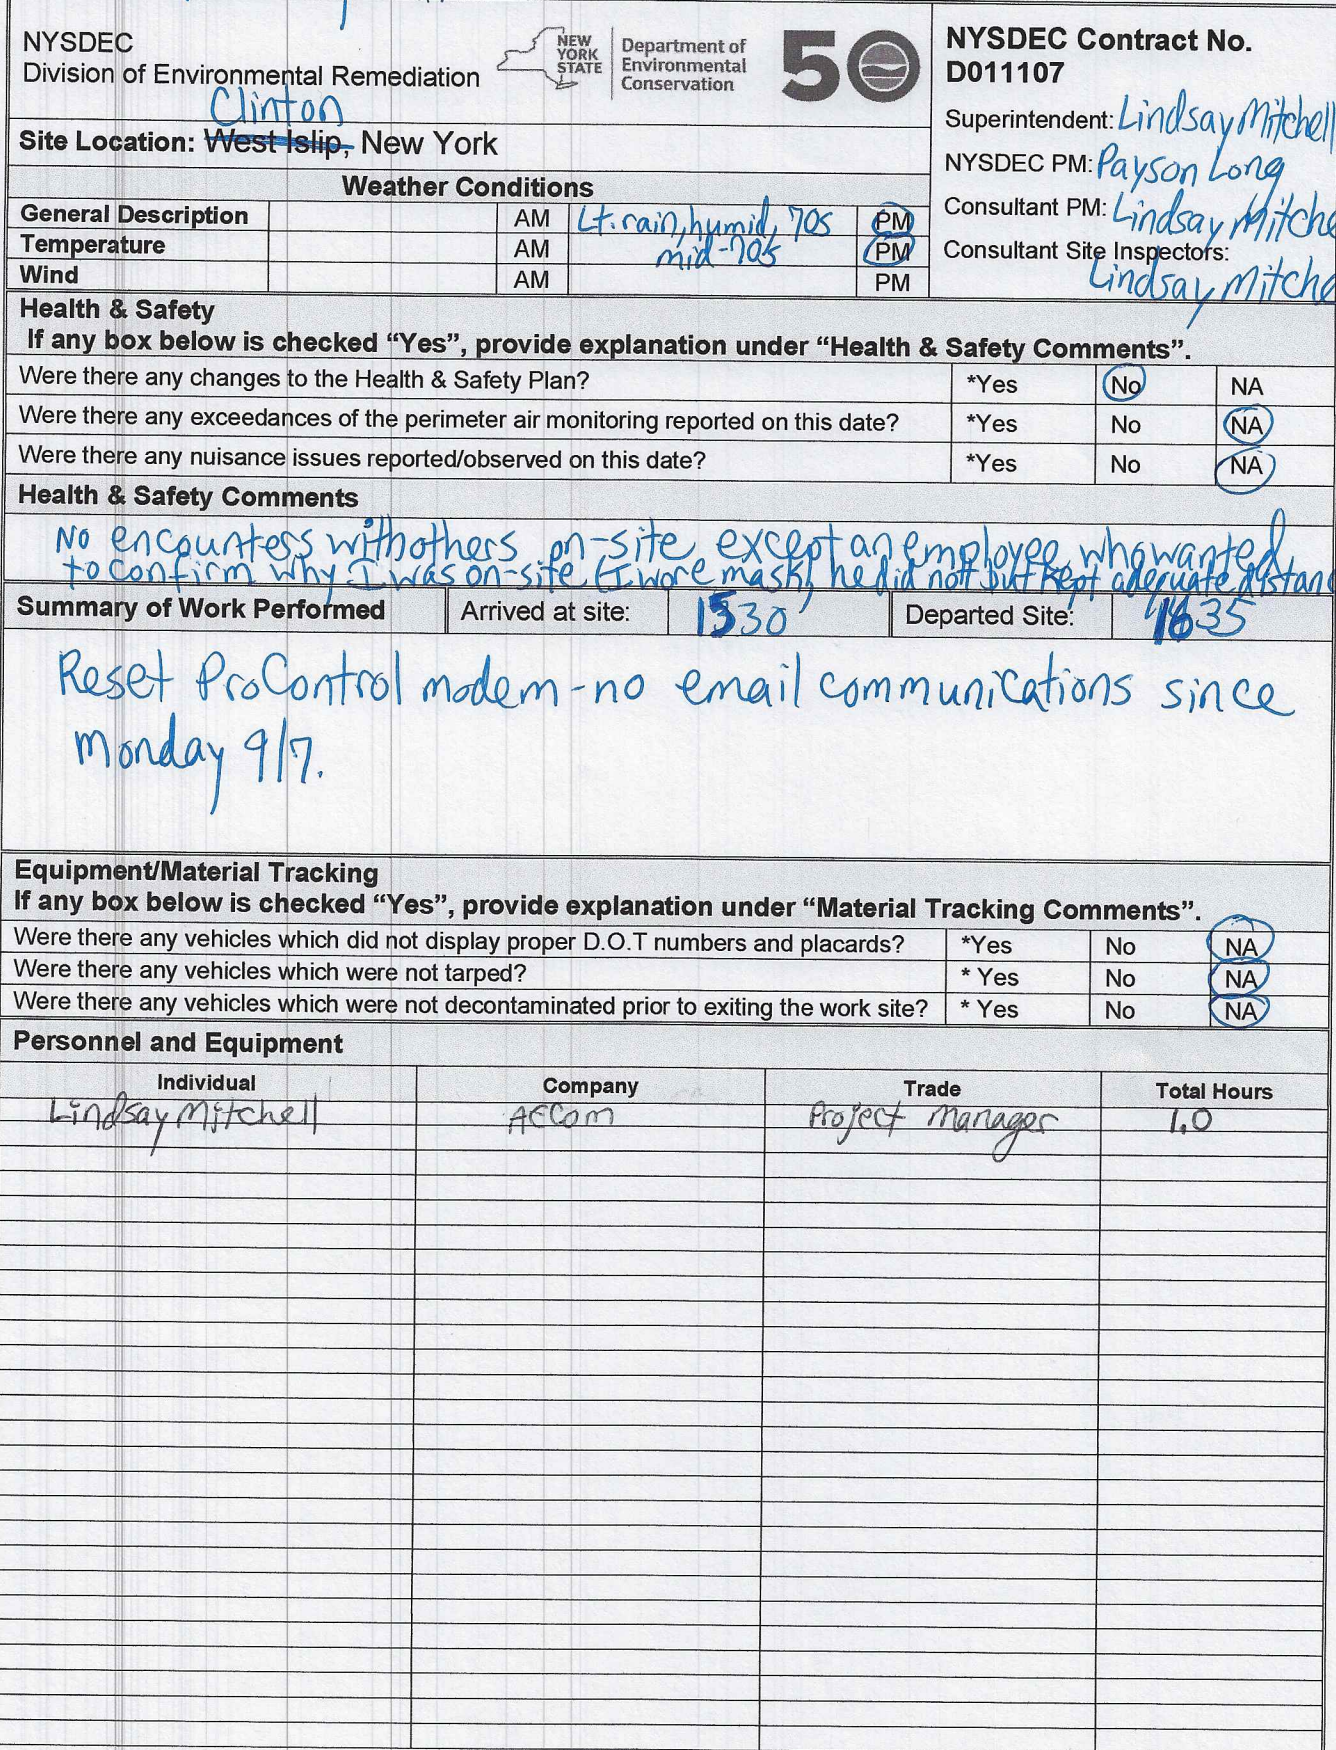 NYSDEC
Division of Environmental Remediation
NEW YORK STATE
Department of Environmental Conservation
50
NYSDEC Contract No.
D011107
Clinton
Site Location: West Islip, New York
Superintendent: Lindsay Mitchell
NYSDEC PM: Payson Long
Consultant PM: Lindsay Mitche
Consultant Site Inspectors:
Lindsay Mitche
Weather Conditions
General Description AM Lt. rain, humid, 70s PM
Temperature AM mid-70s PM
Wind AM PM
Health & Safety
If any box below is checked “Yes”, provide explanation under “Health & Safety Comments”.
Were there any changes to the Health & Safety Plan? *Yes No NA
Were there any exceedances of the perimeter air monitoring reported on this date? *Yes No NA
Were there any nuisance issues reported/observed on this date? *Yes No NA
Health & Safety Comments
No encounters with others on-site, except an employee who wanted
to confirm why I was on-site (I wore mask, he did not but kept adequate distan
Summary of Work Performed Arrived at site: 1530 Departed Site: 1635
Reset ProControl modem - no email communications since
Monday 9/7.
Equipment/Material Tracking
If any box below is checked “Yes”, provide explanation under “Material Tracking Comments”.
Were there any vehicles which did not display proper D.O.T numbers and placards? *Yes No NA
Were there any vehicles which were not tarped? * Yes No NA
Were there any vehicles which were not decontaminated prior to exiting the work site? * Yes No NA
Personnel and Equipment
Individual Company Trade Total Hours
Lindsay Mitchell AECOM Project Manager 1.0